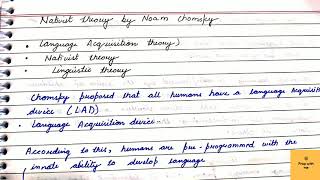 Nativist theory by Noam Chomsky
• Language Acquisition theory)
• Nativist theory
• Linguistic theory
Chomsky proposed that all humans have a language Acquisit
device (LAD)
• Language Acquisition device
According to this, humans are pre-programmed with the
innate ability to develop language.
Prep with
me